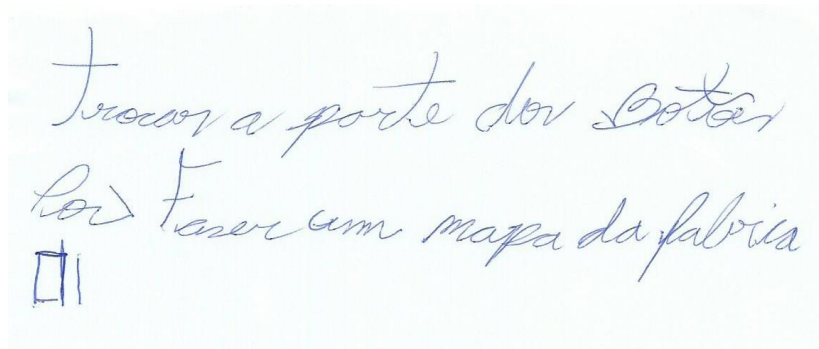 Trocar a parte dos Botões
Por Fazer um mapa da fabrica